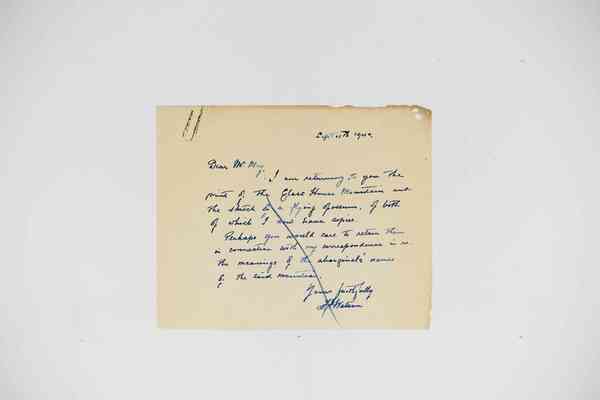 Dear Mr
I am returning to you the
print of the Glass House Mountain and
the sketch to a flying Opossum, of both
of which I now have copies.
Perhaps you would care to retain them
in connection with my correspondence in re
the meanings of the aboriginals' names
of the said mountain
Yours faithfully
Watson